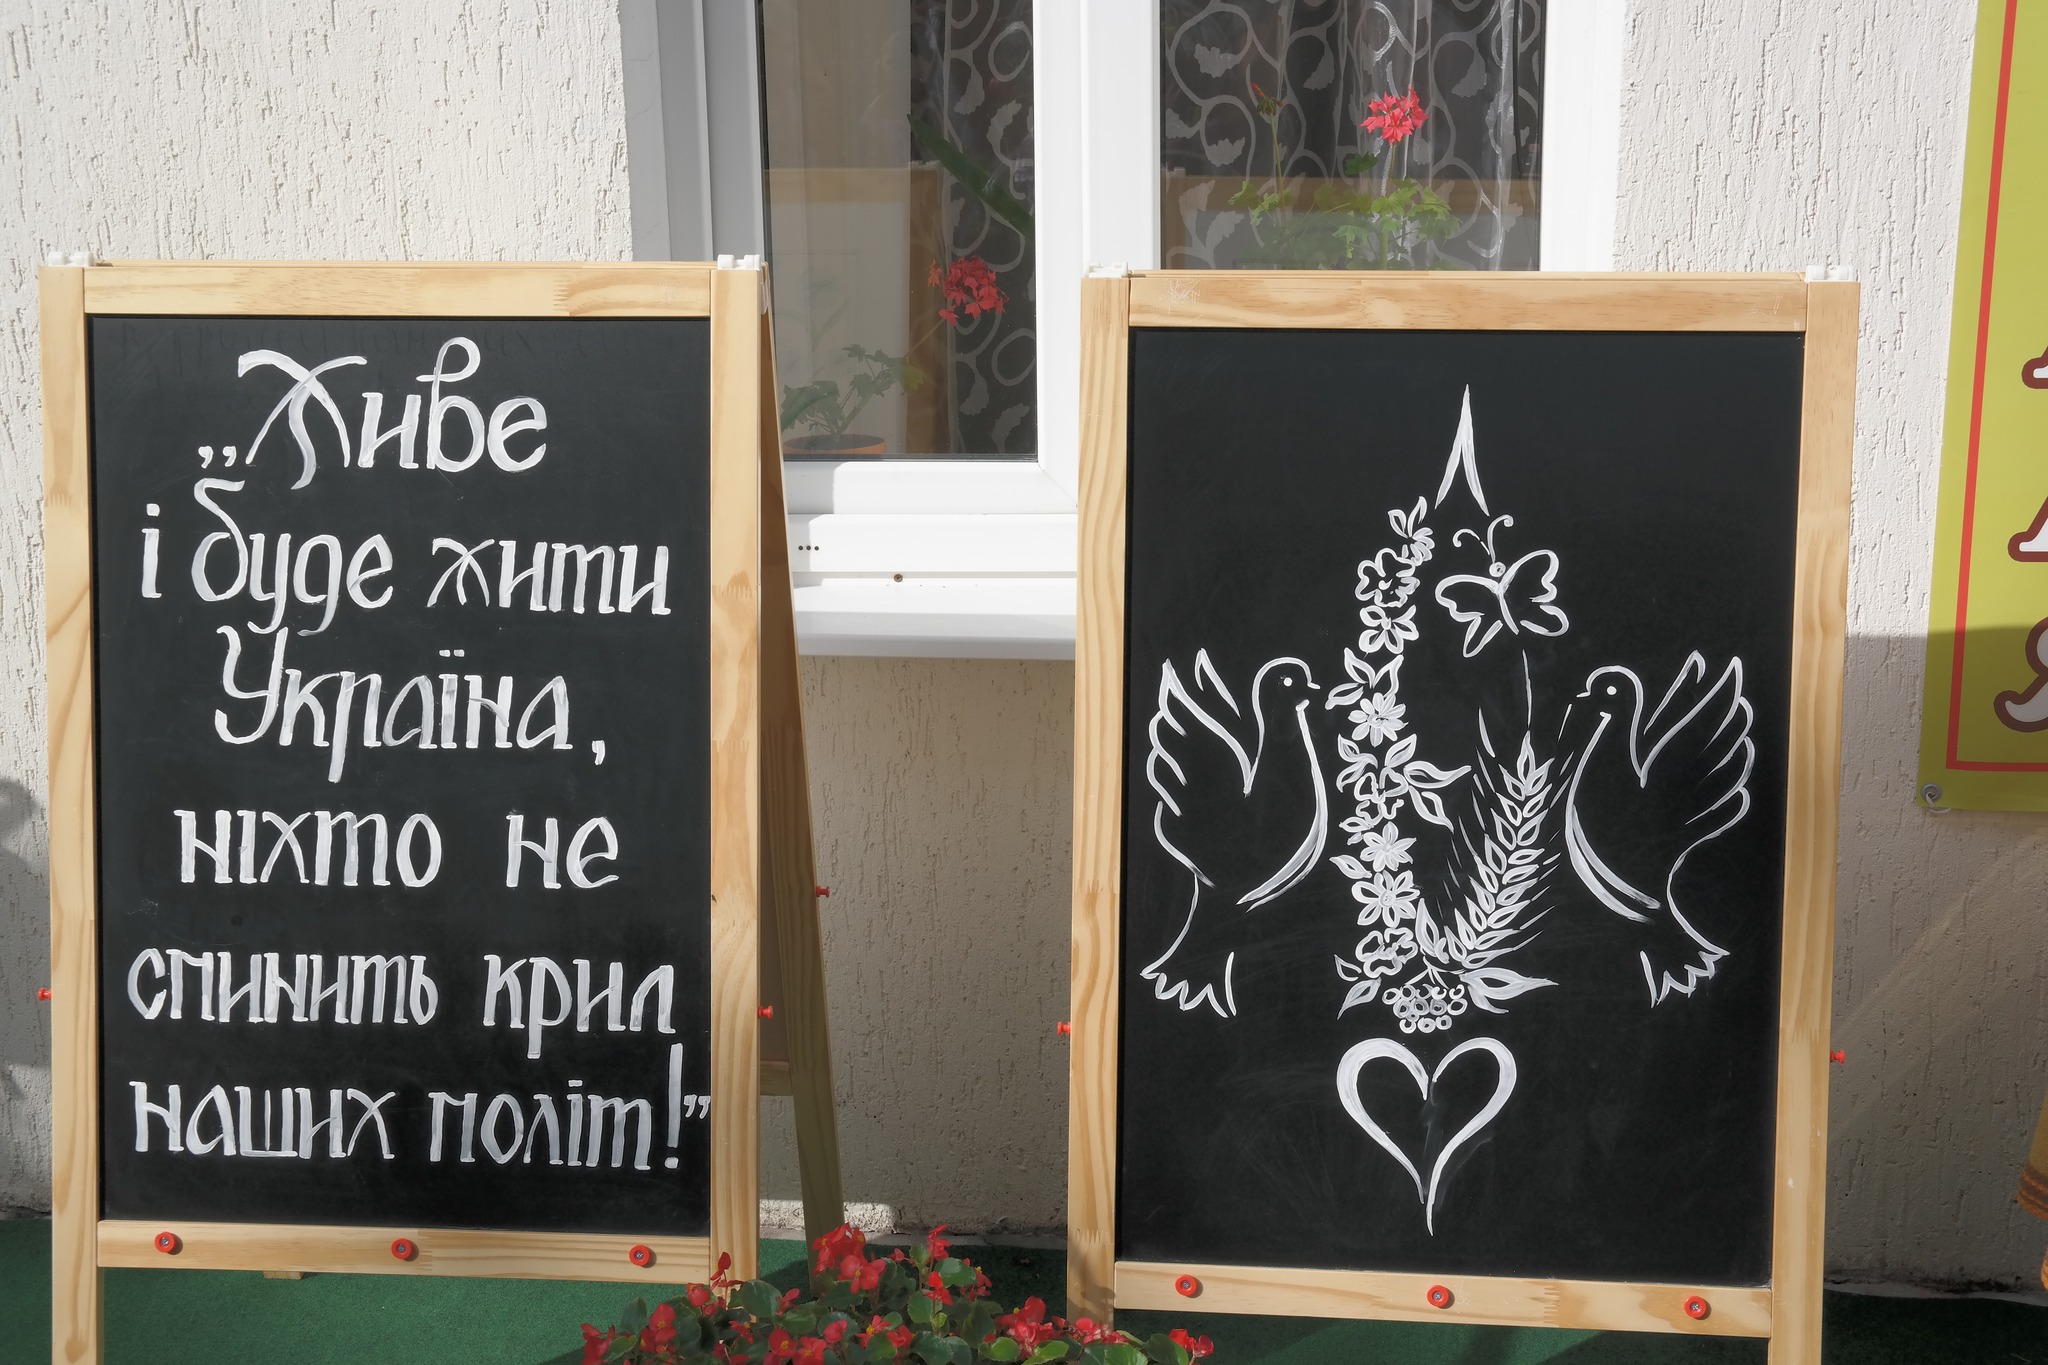 „Живе
і буде жити
Україна,
ніхто не
спинить крил
наших політ!”